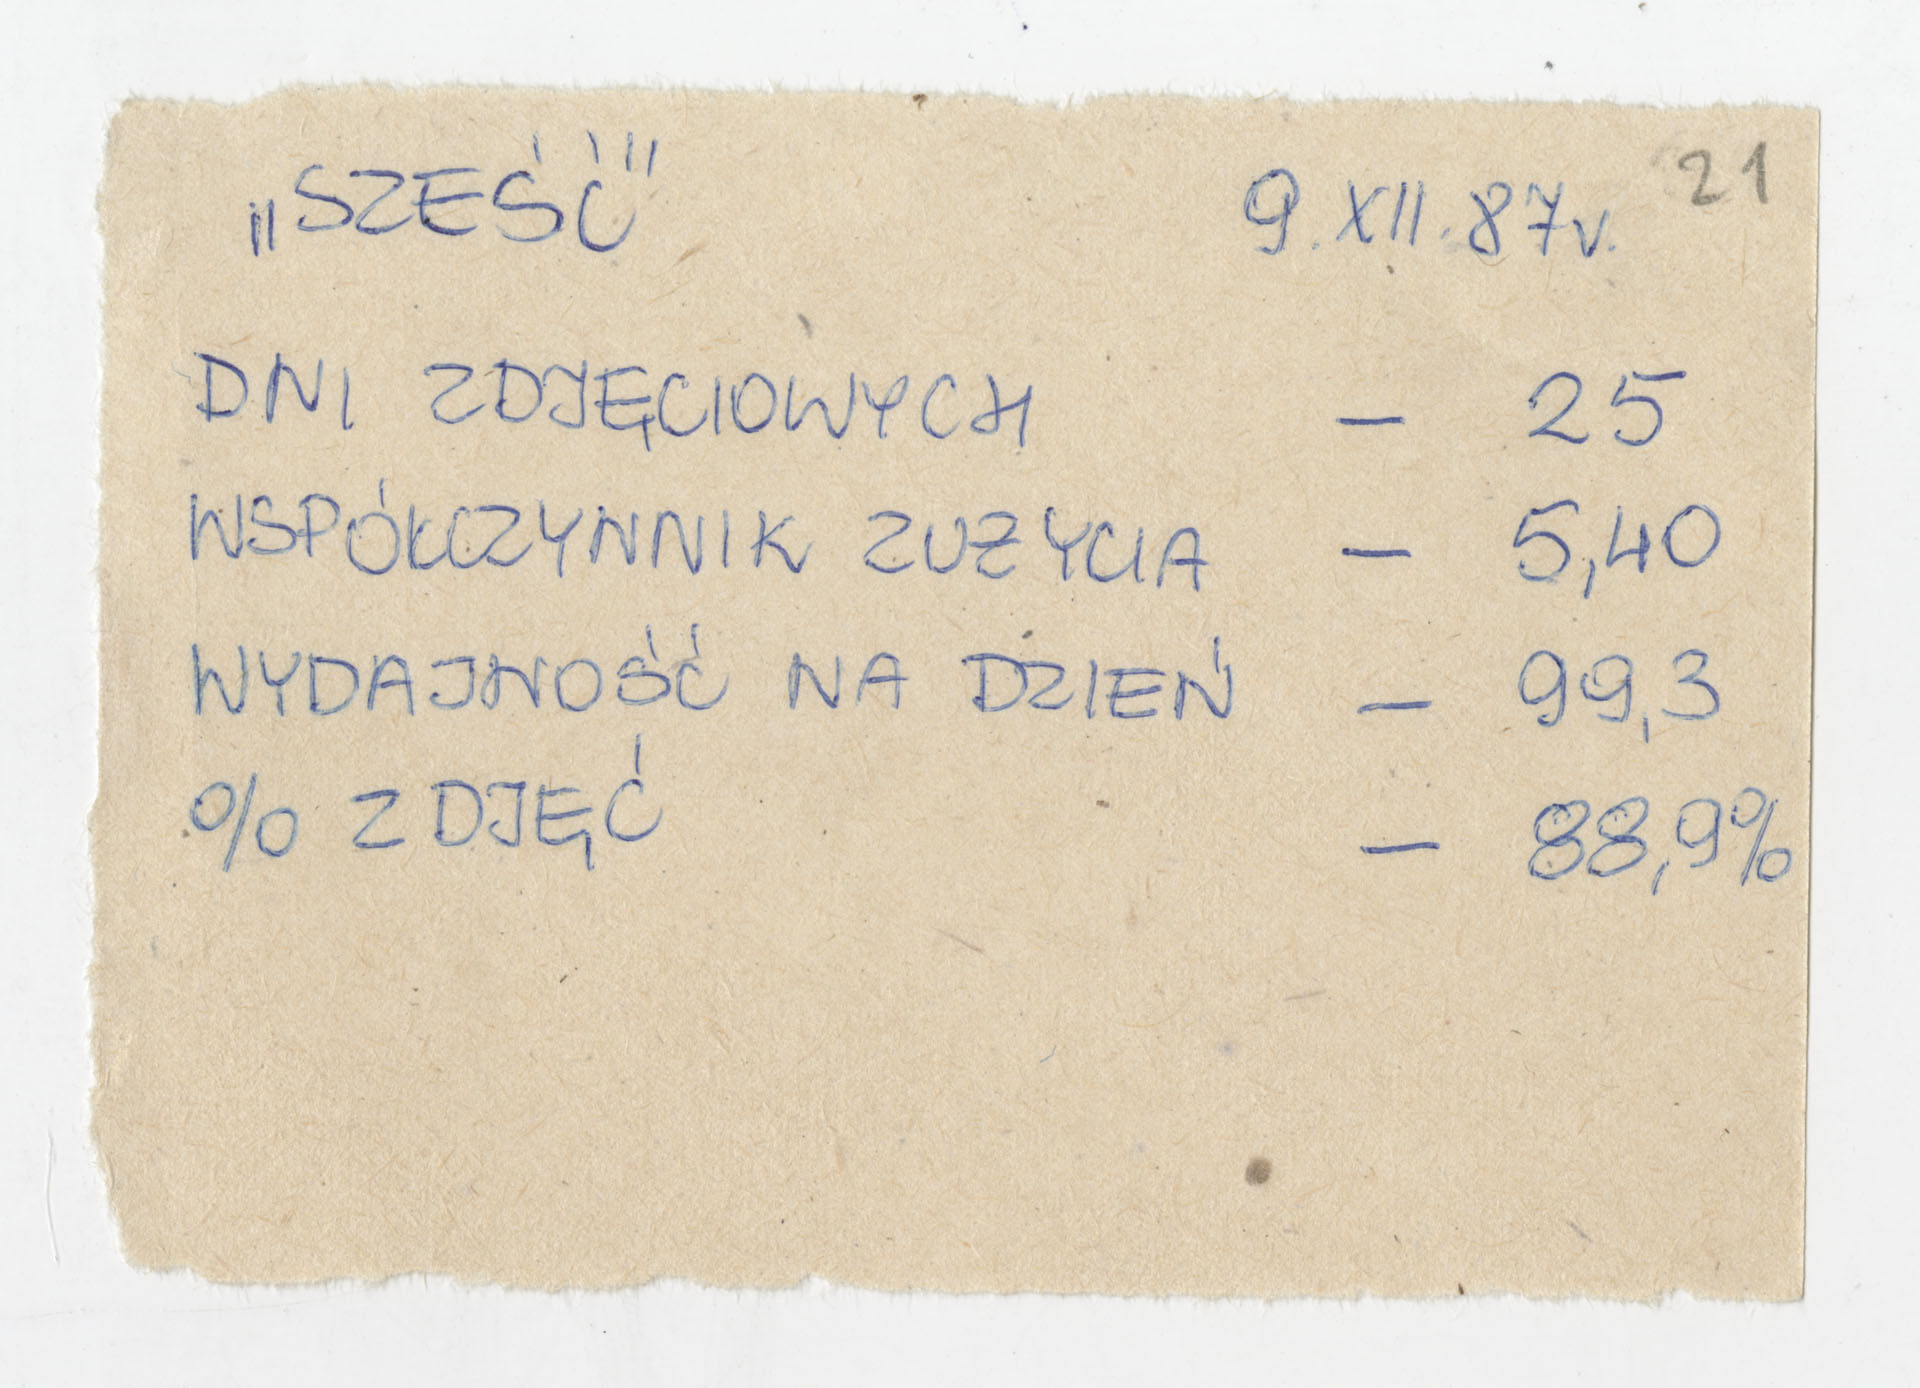 „SZEŚĆ” 9.XII.87r. 21
DNI ZDJĘCIOWYCH – 25
WSPÓŁCZYNNIK ZUŻYCIA – 5,40
WYDAJNOŚĆ NA DZIEŃ – 99,3
% ZDJĘĆ – 88,9%